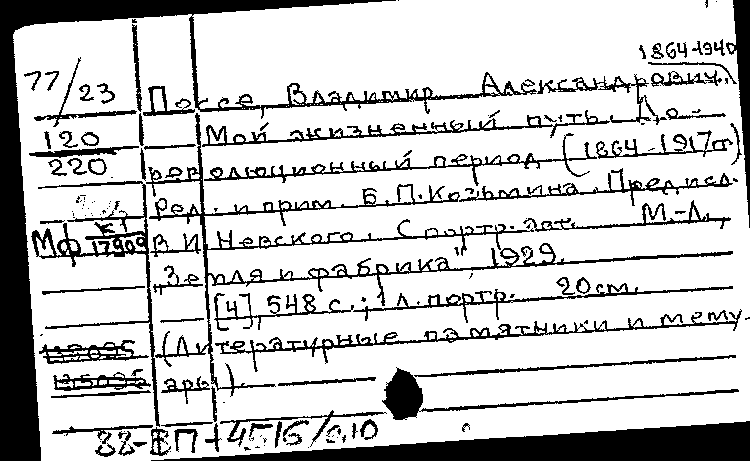 1864-1940
77/23 Поссе, Владимир Александрович.
120 Мой жизненный путь. До-
220 революционный период (1864-1917 гг)
Ред. и прим. Б.П. Козьмина. Предисл.
Мф К1 17909 В.И. Невского. С портр. авт. М.-Л.,
"Земля и фабрика", 1929.
[4], 548 с.; 1 л. портр. 20 см.
(Литературные памятники и мему-
ары).
88-ВП+4516/0,10